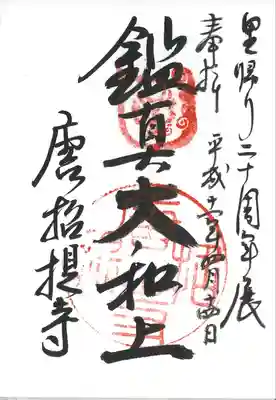 里帰り二十周年展
奉拝 平成十二年四月十四日
鑑真大和上
唐招提寺